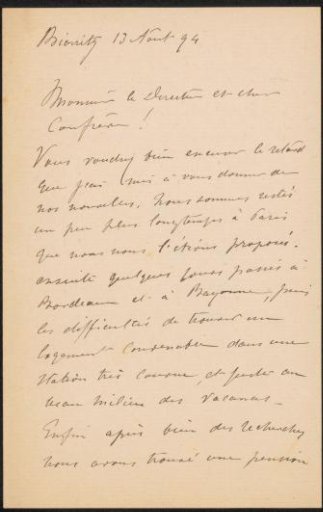 Biarritz 13 Aout 94
Monsieur le Directeur et cher
Confrère !
Vous voudrez bien excuser le retard
que j'ai mis à vous donner de
nos nouvelles. Nous sommes restés
un peu plus longtemps à Paris
que nous nous l'étions proposé.
ensuite quelques jours passés à
Bordeaux et à Bayonne, puis
les difficultés de trouver un
logement convenable dans une
station très courue, et juste au
beau milieu des vacances.
Enfin après bien des recherches
nous avons trouvé une pension